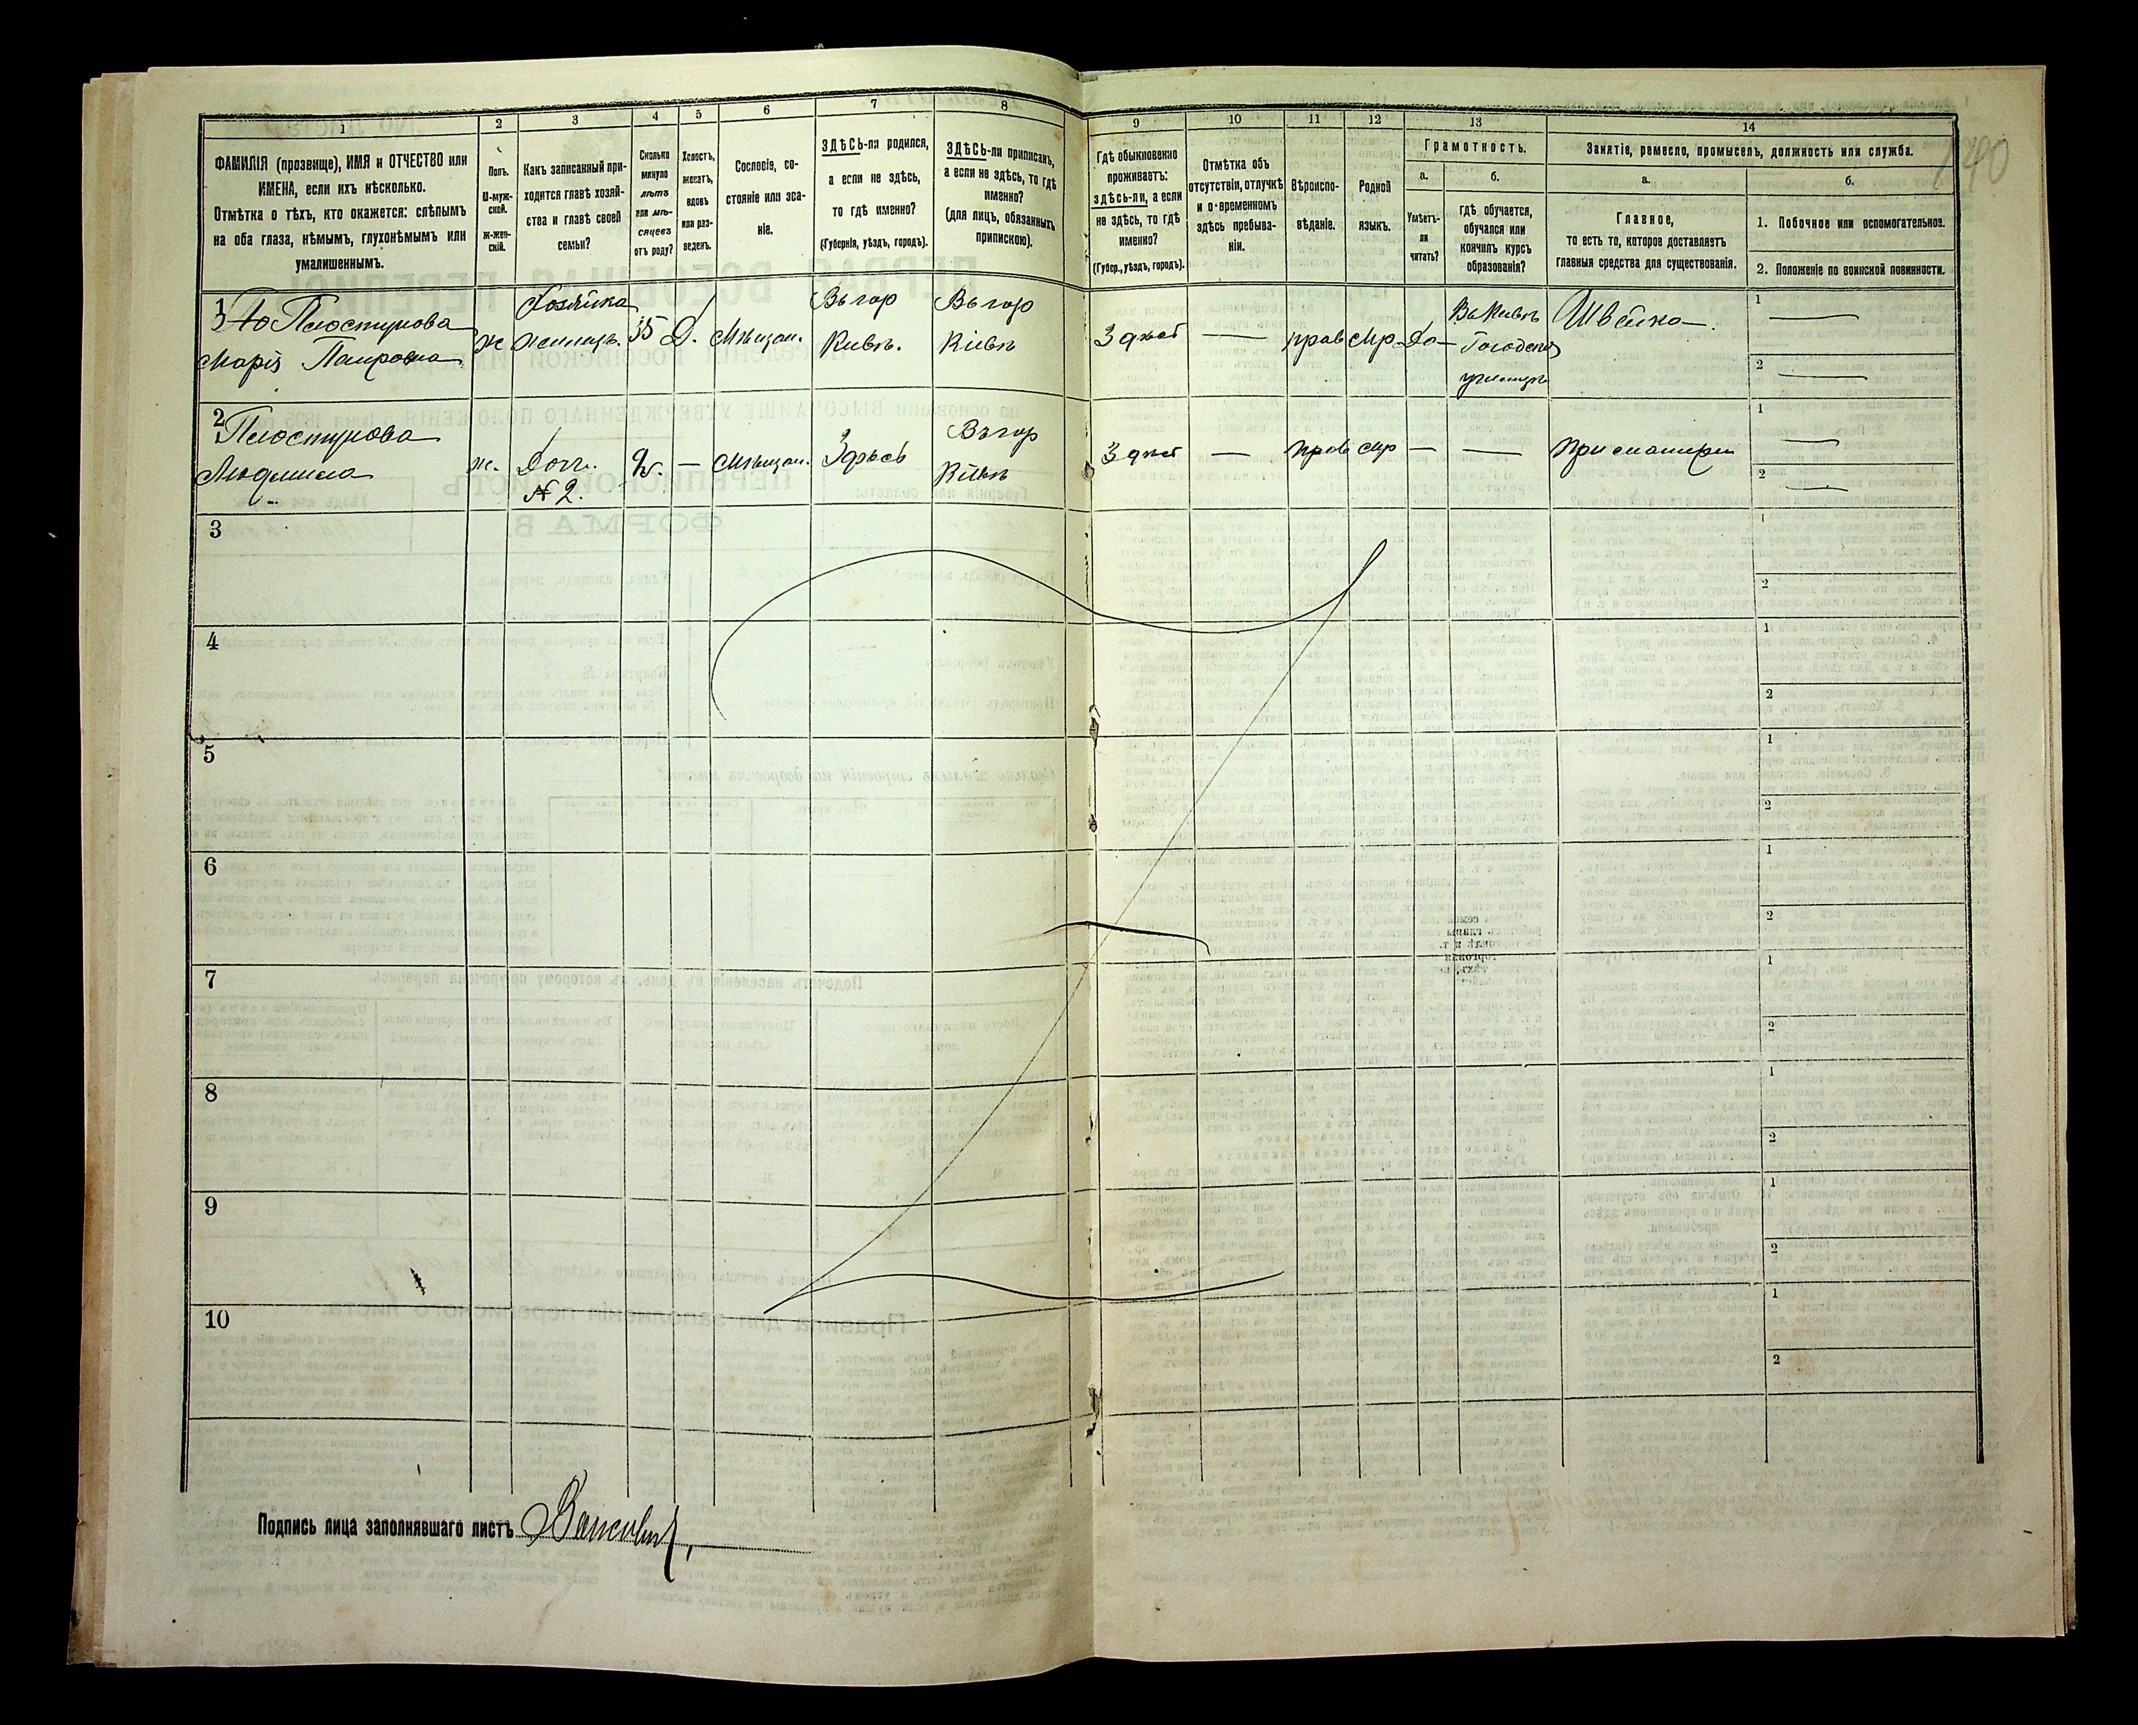 1
2
3
4
5
6
7
8
9
10
11
12
13
14
ФАМИЛІЯ (прозвище), ИМЯ и ОТЧЕСТВО или
ИМЕНА, если ихъ нѣсколько.
Отмѣтка о тѣхъ, кто окажется: слѣпымъ
на оба глаза, нѣмымъ, глухонѣмымъ или
умалишеннымъ.
Полъ.
М-муж-
ской.
Ж-жен-
скій.
Какъ записанный при-
ходится главѣ хозяй-
ства и главѣ своей
семьи?
Сколько
минуло
лѣтъ
или мѣ-
сяцевъ
отъ роду?
Холостъ,
женатъ,
вдовъ
или раз-
веденъ.
Сословіе, со-
стояніе или зва-
ніе.
ЗДѢСЬ-ли родился,
а если не здѣсь,
то гдѣ именно?
(Губернія, уѣздъ, городъ).
ЗДѢСЬ-ли приписанъ,
а если не здѣсь, то гдѣ
именно?
(для лицъ, обязанныхъ
припискою).
Гдѣ обыкновенно
проживаетъ:
здѣсь-ли, а если
не здѣсь, то гдѣ
именно?
(Губер., уѣздъ, городъ).
Отмѣтка объ
отсутствіи, отлучкѣ
и о временномъ
здѣсь пребыва-
ніи.
Вѣроиспо-
вѣданіе.
Родной
языкъ.
Грамотность.
а.
Умѣетъ-
ли
читать?
б.
гдѣ обучается,
обучался или
кончилъ курсъ
образованія?
Занятіе, ремесло, промыселъ, должность или служба.
а.
Главное,
то есть то, которое доставляетъ
главныя средства для существованія.
б.
1. Побочное или вспомогательное.
2. Положеніе по воинской повинности.
140
1
Плостунова
Марія
ж
Хозяйка
35
Д.
Мѣщан.
Въ гор
Кіевѣ.
Въ гор
Кіевѣ
Здѣсь
—
прав
Да
Въ Кіевѣ
Городское
училище
Швейка
1 —
2 —
2
Плостунова
Людмила
ж.
Дочь
№ 2.
—
Мѣщан.
Здѣсь
Въ гор
Кіевѣ
Здѣсь
—
прав
—
—
При матери
1 —
2 —
3
1
2
4
1
2
5
1
2
6
1
2
7
1
2
8
1
2
9
1
2
10
1
2
Подпись лица заполнявшаго листъ